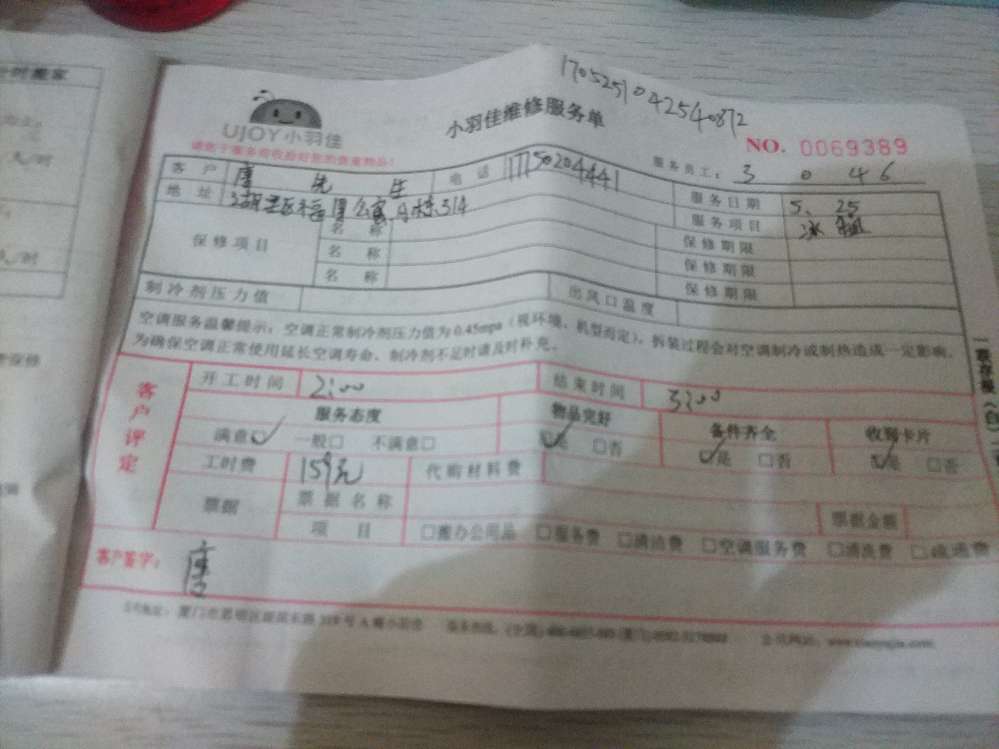 1705251042540872
小时搬家
UJOY小羽佳
小羽佳维修服务单
NO. 0069389
请您于服务前收拾好您的贵重物品!
服务员工: 3046
客户 唐先生 电话 17750204441 服务日期 5.25
地址 服务项目 冰箱
保修项目 名称 保修期限
名称 保修期限
名称 保修期限
制冷剂压力值 出风口温度
空调服务温馨提示:空调正常制冷剂压力值为0.45mpa(视环境、机型而定),拆装过程会对空调制冷或制热造成一定影响,
为确保空调正常使用延长空调寿命,制冷剂不足时请及时补充。
客户评定
开工时间 2:00 结束时间 3:00
服务态度 物品完好 备件齐全 收到卡片
满意☑ 一般□ 不满意□ ☑是 □否 ☑是 □否 ☑是 □否
工时费 159元 代购材料费
票据 票据名称 票据金额
项目 □搬办公用品 □服务费 □清洁费 □空调服务费 □清洗费 □疏通费
客户签字: 唐